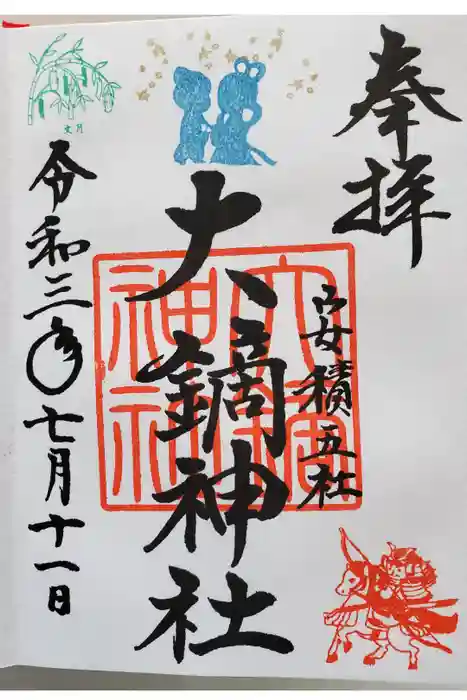 奉拝
安積五社
大鏑神社
大鏑神社
令和三年七月十一日
文月